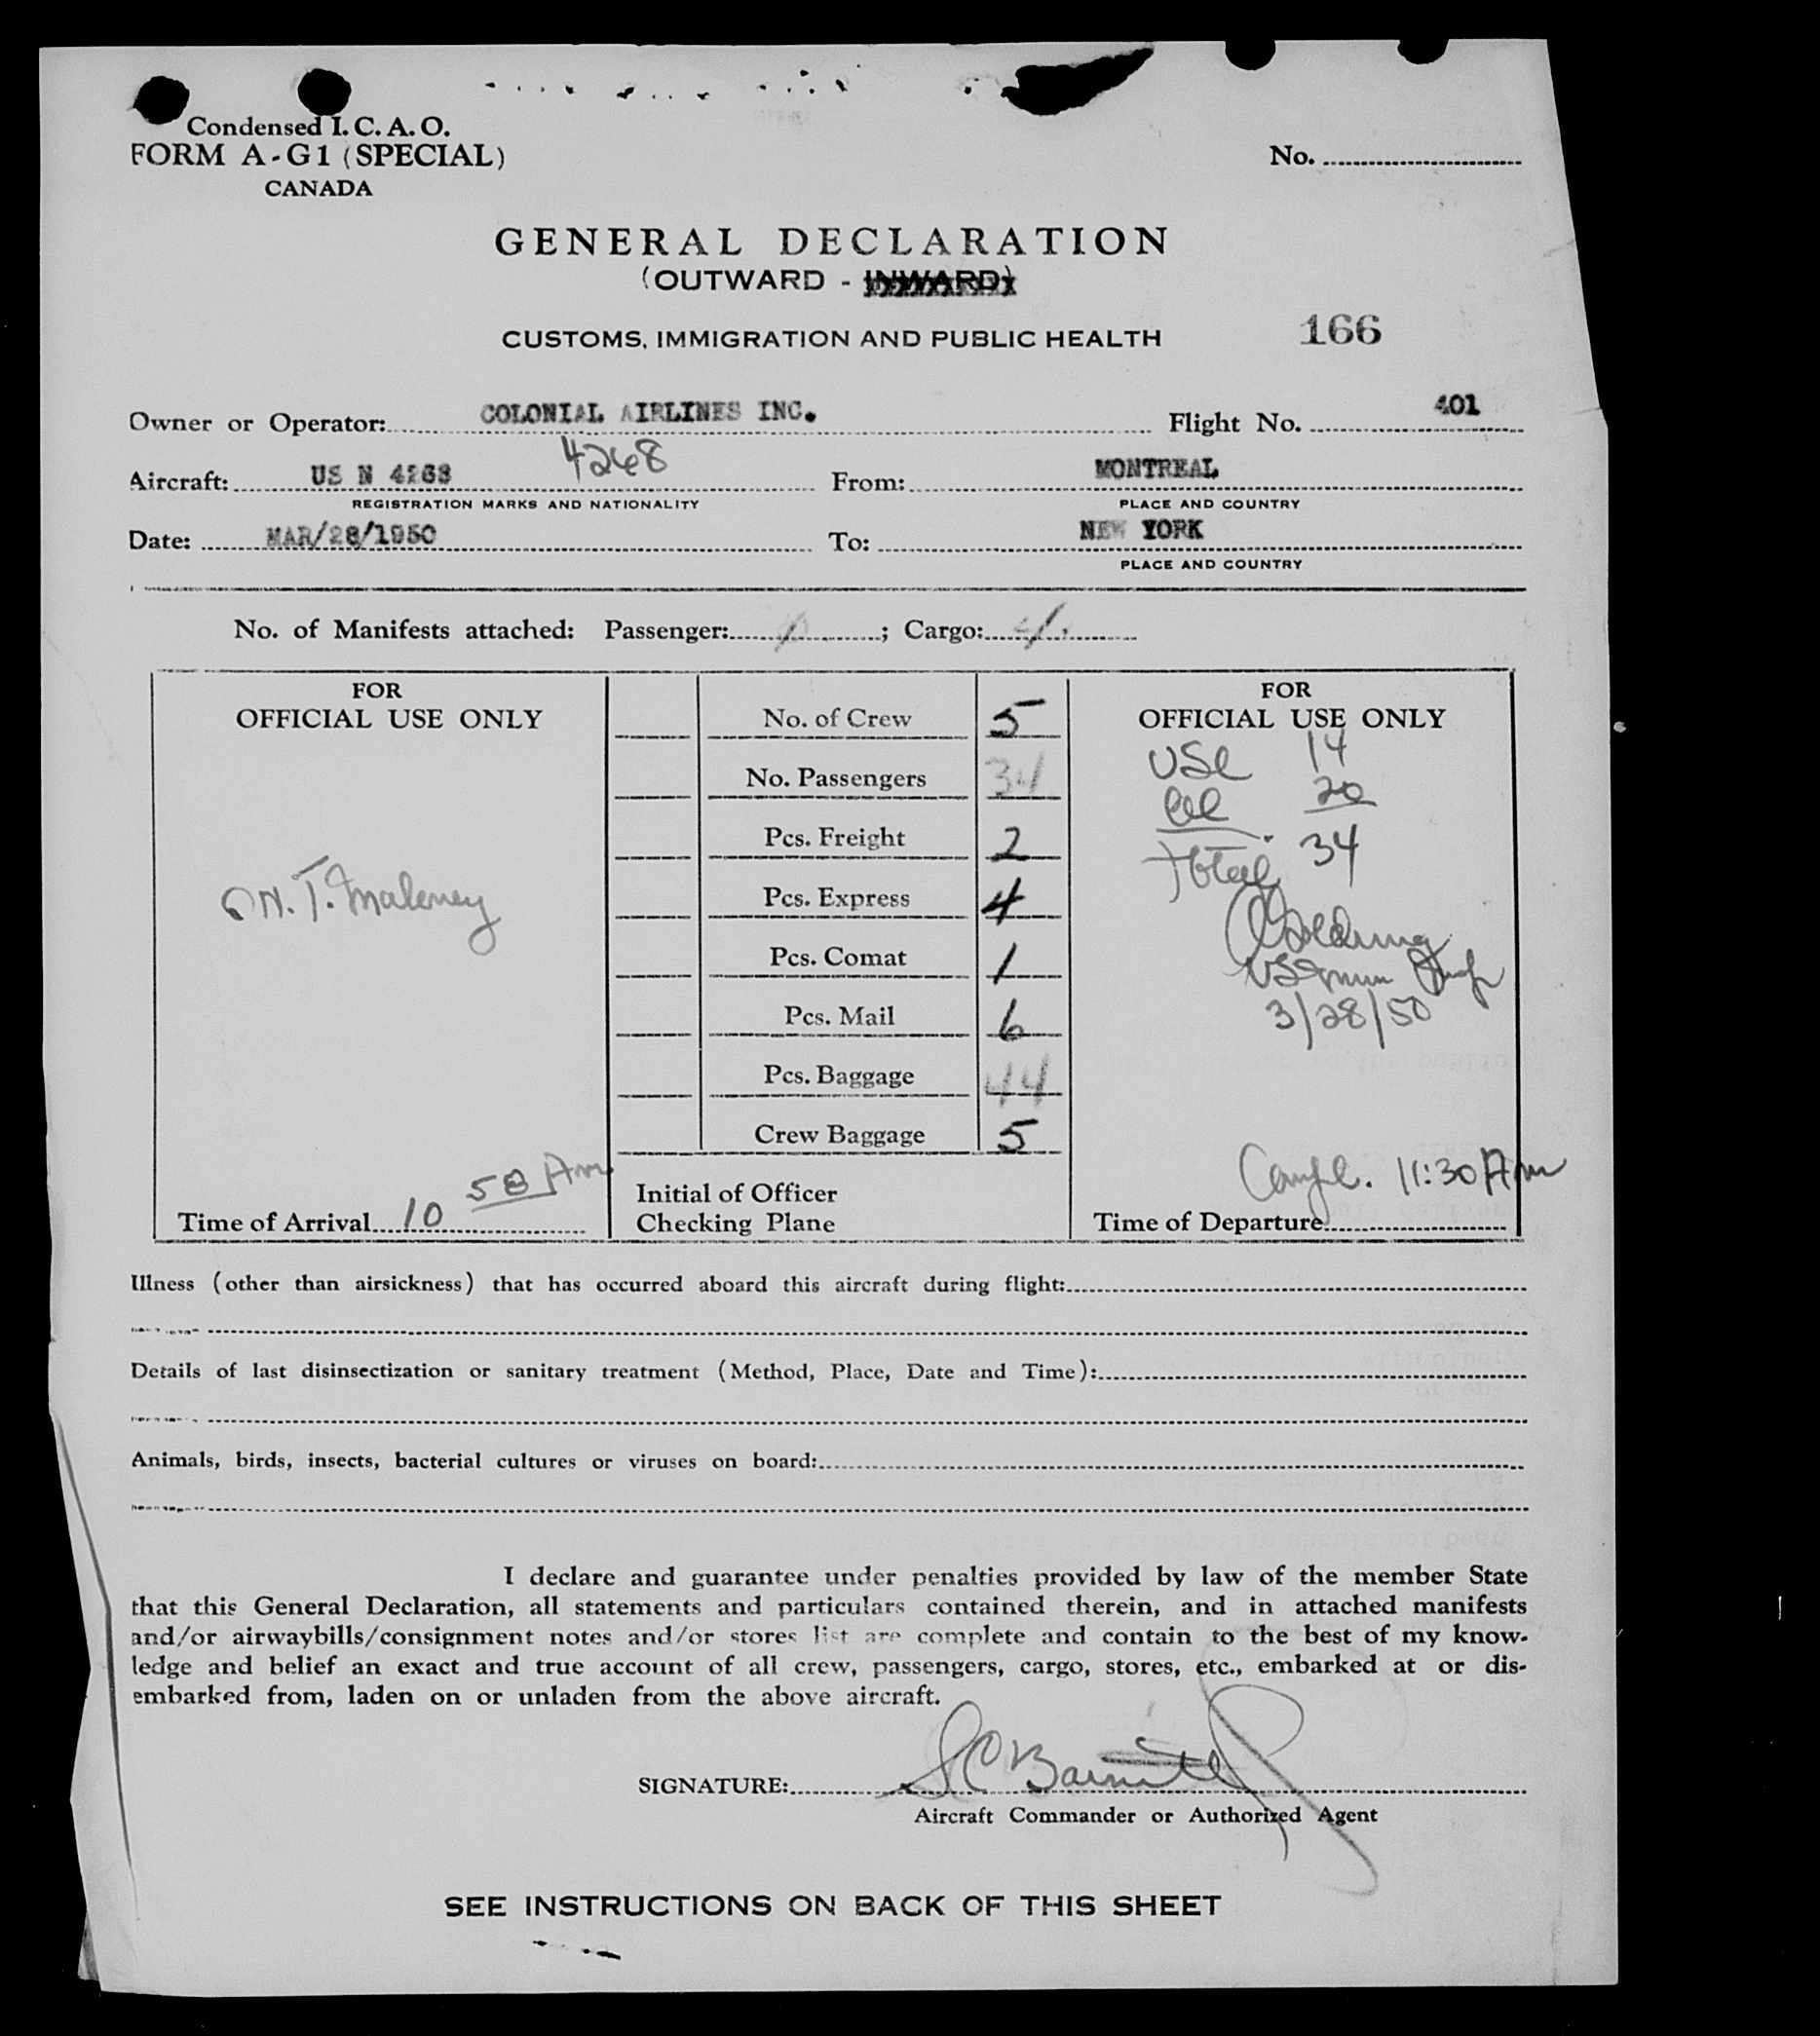 Condensed I. C. A. O.
FORM A-G1 (SPECIAL)
CANADA
No.
GENERAL DECLARATION
(OUTWARD - INWARD)
CUSTOMS, IMMIGRATION AND PUBLIC HEALTH 166
Owner or Operator: COLONIAL AIRLINES INC. Flight No. 401
Aircraft: US N 4268 4268 From: MONTREAL
REGISTRATION MARKS AND NATIONALITY PLACE AND COUNTRY
Date: MAR/28/1950 To: NEW YORK
PLACE AND COUNTRY
No. of Manifests attached: Passenger: ; Cargo:
FOR
OFFICIAL USE ONLY
N. T. Maloney
10 58 Am
Time of Arrival
No. of Crew 5
No. Passengers 34
Pcs. Freight 2
Pcs. Express 4
Pcs. Comat 1
Pcs. Mail 6
Pcs. Baggage 44
Crew Baggage 5
Initial of Officer
Checking Plane
FOR
OFFICIAL USE ONLY
USC 14
20
Total 34
3/28/50
11:30 Am
Time of Departure
Illness (other than airsickness) that has occurred aboard this aircraft during flight:
Details of last disinsectization or sanitary treatment (Method, Place, Date and Time):
Animals, birds, insects, bacterial cultures or viruses on board:
I declare and guarantee under penalties provided by law of the member State
that this General Declaration, all statements and particulars contained therein, and in attached manifests
and/or airwaybills/consignment notes and/or stores list are complete and contain to the best of my know-
ledge and belief an exact and true account of all crew, passengers, cargo, stores, etc., embarked at or dis-
embarked from, laden on or unladen from the above aircraft.
SIGNATURE:
Aircraft Commander or Authorized Agent
SEE INSTRUCTIONS ON BACK OF THIS SHEET